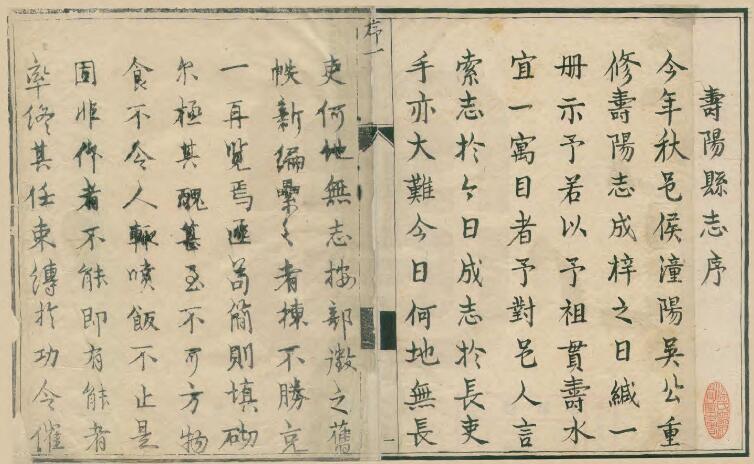 壽陽縣志序
今年秋邑侯潼陽吳公重
修壽陽志成梓之日緘一
冊示予若以予祖貫壽水
宜一寓目者予對邑人言
索志於今日成志於長吏
手亦大難今日何地無長
序一
吏何地無志按部徵之舊
帙新編纍纍者棟不勝充
一再覽焉匪苟簡則填砌
尔極其醜甚至不可方物
食不令人輒噴飯不止是
固非作者不能即有能者
率終其任束縛於功令催
一